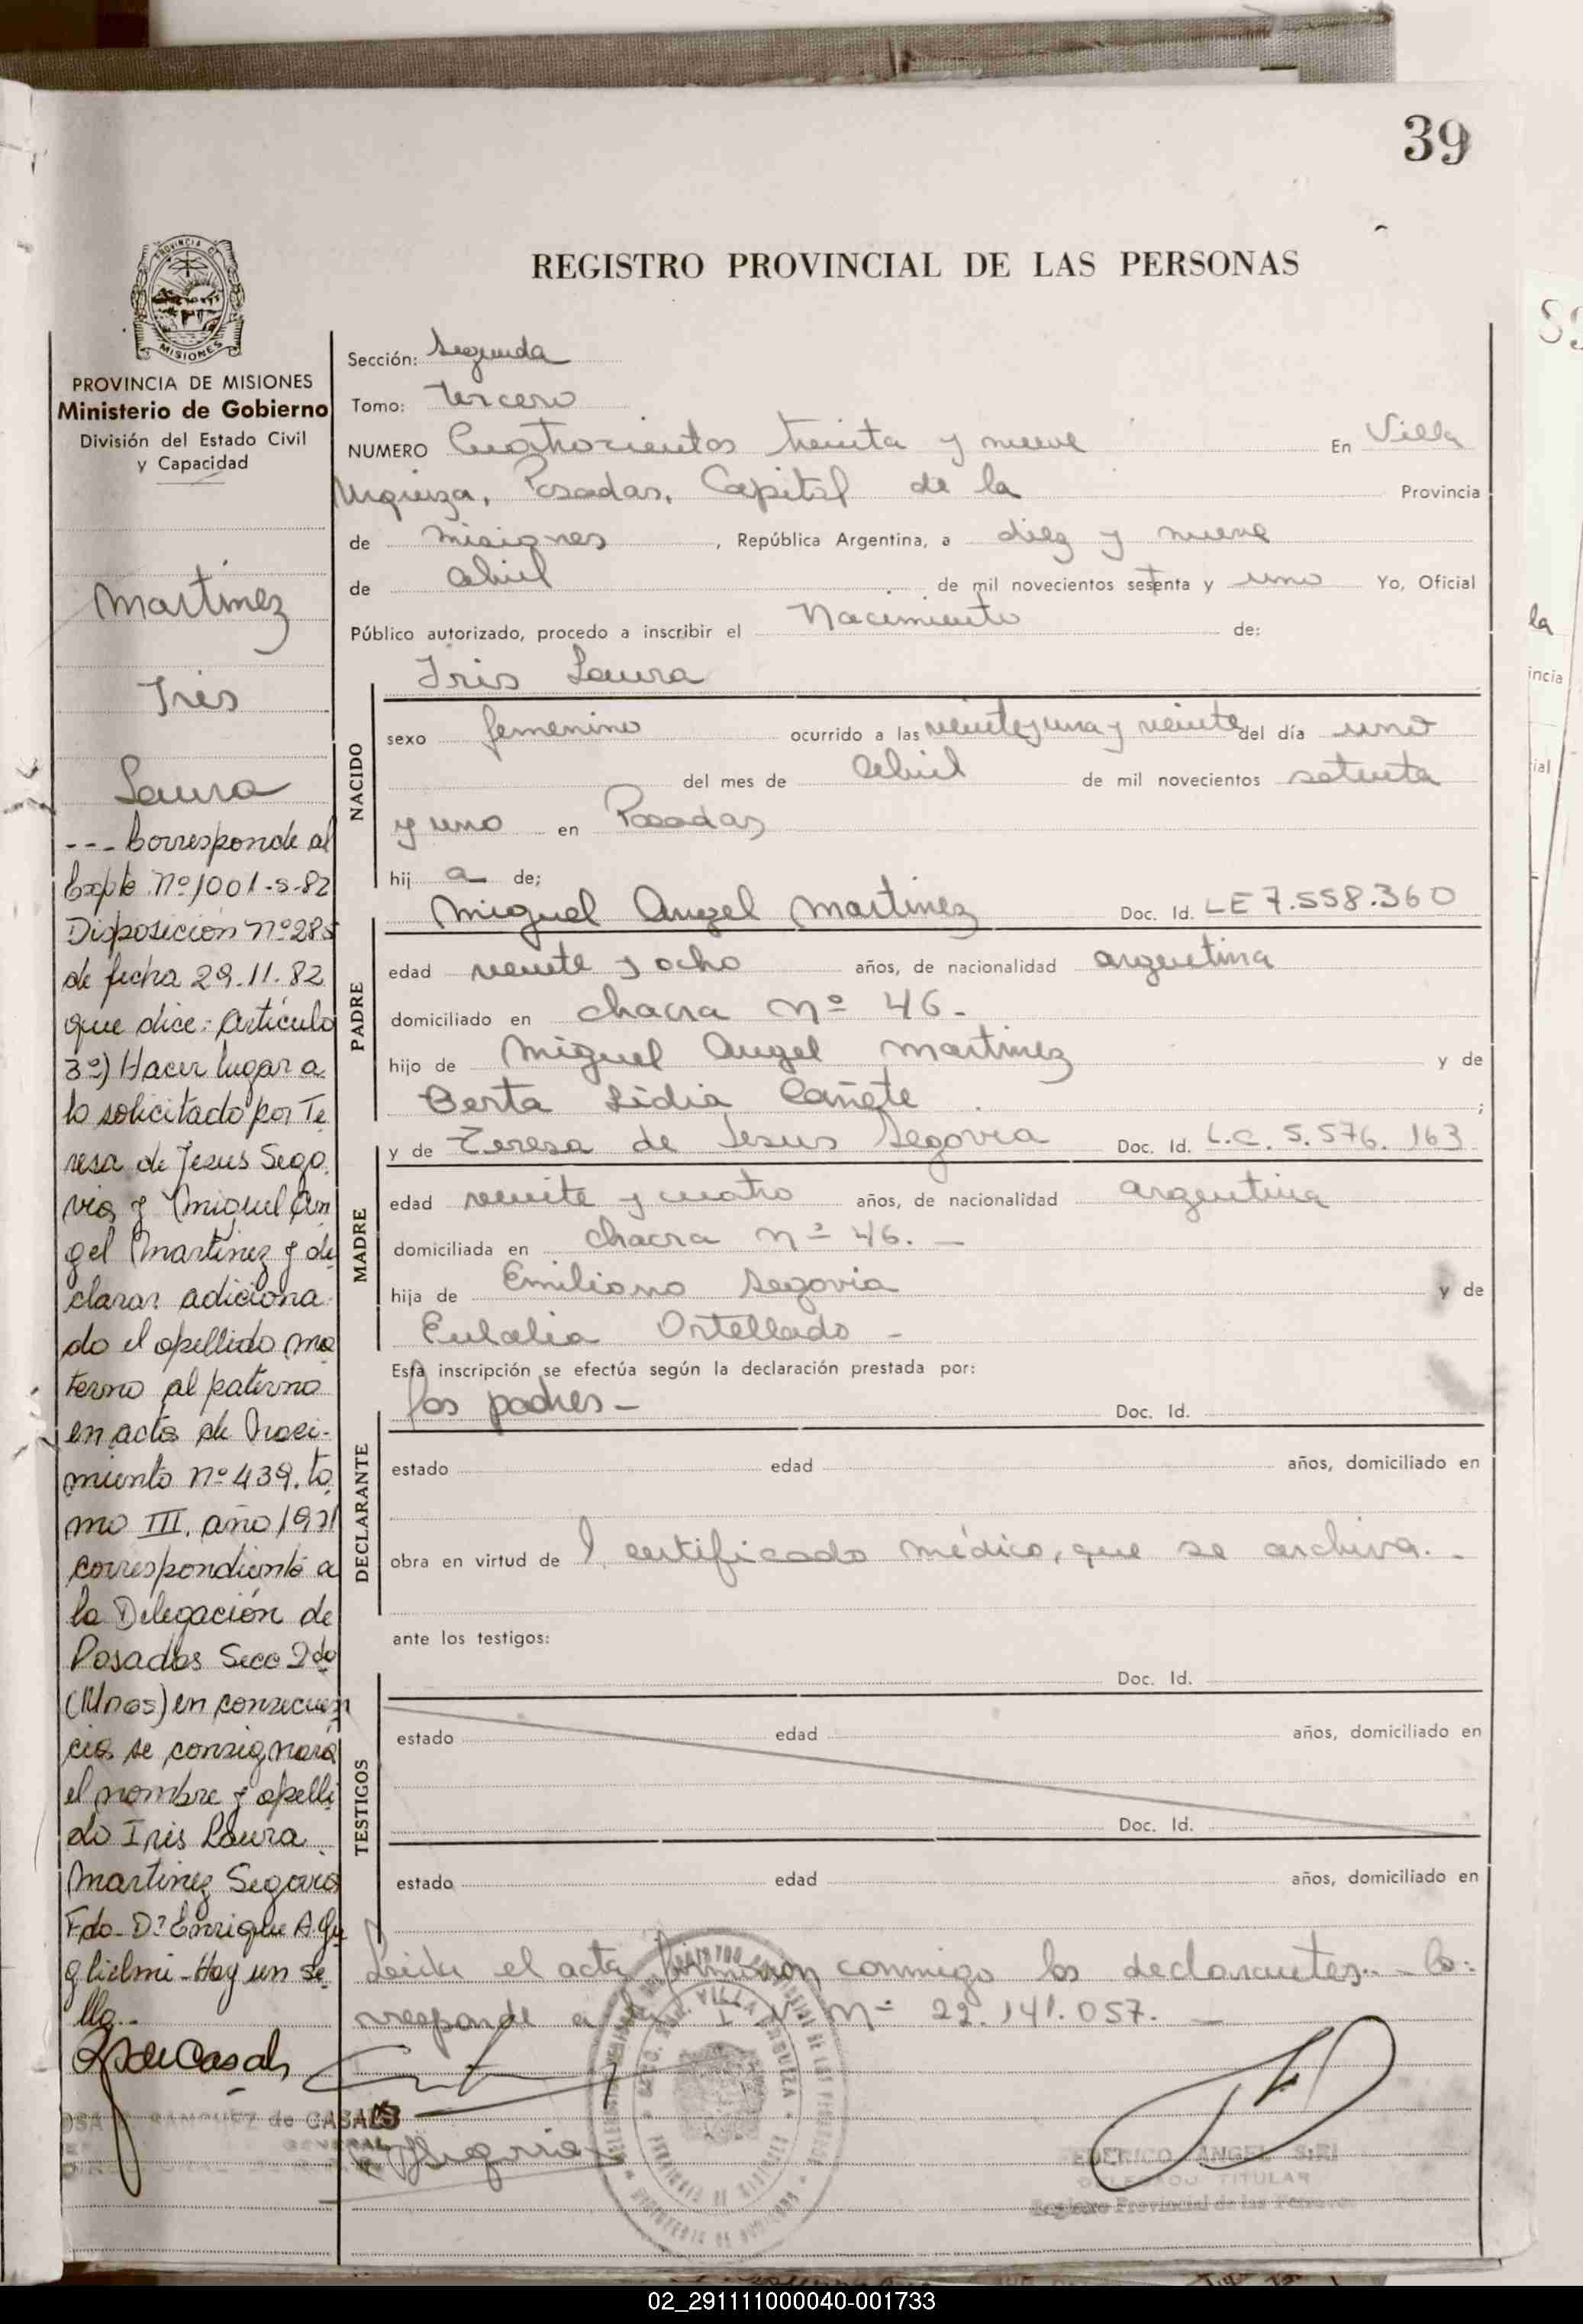 39
REGISTRO PROVINCIAL DE LAS PERSONAS
PROVINCIA DE
MISIONES
PROVINCIA DE MISIONES
Ministerio de Gobierno
División del Estado Civil
y Capacidad
Martinez
Iris
Laura
--- Corresponde al
Expte Nº 1001-S-82
Disposición Nº 285
de fecha 29.11.82
que dice: Artículo
3º) Hacer lugar a
lo solicitado por Te
resa de Jesus Sego
via y Miguel An
gel Martinez y de
clarar adiciona
do el apellido ma
terno al paterno
en acta de Naci-
miento nº 439. to
mo III. año 1971
correspondiente a
la Delegación de
Posadas Secc 2da
(Mnes) en consecuen
cia se consignará
el nombre y apelli
do Iris Laura
Martinez Segovia
Fdo- Dr Enrique A. Gu
glielmi - Hay un se
llo.-
de CASALS
Sección: Segunda
Tomo: tercero
NUMERO Cuatrocientos treinta y nueve En Villa
Urquiza, Posadas, Capital de la Provincia
de Misiones , República Argentina, a diez y nueve
de abril de mil novecientos setenta y uno Yo, Oficial
Público autorizado, procedo a inscribir el Nacimiento de:
Iris Laura
NACIDO
sexo femenino ocurrido a las veinte y una y veinte del día uno
del mes de abril de mil novecientos setenta
y uno en Posadas
hij a de;
Miguel Angel Martinez Doc. Id. LE 7.558.360
PADRE
edad veinte y ocho años, de nacionalidad argentina
domiciliado en chacra nº 46-
hijo de Miguel Angel Martinez y de
Berta Lidia Cañete ;
y de Teresa de Jesus Segovia Doc. Id. L.C. 5.576.163
MADRE
edad veinte y cuatro años, de nacionalidad argentina
domiciliada en chacra nº 46.-
hija de Emiliano Segovia y de
Eulalia Ortellado -
Esta inscripción se efectúa según la declaración prestada por:
los padres- Doc. Id.
DECLARANTE
estado edad años, domiciliado en
obra en virtud de l certificado médico, que se archiva.-
ante los testigos:
Doc. Id.
TESTIGOS
estado edad años, domiciliado en
Doc. Id.
estado edad años, domiciliado en
Leida el acta, firmaron conmigo los declarantes.- Co:
rresponde a Nº 22.141.057.-
VILLA URQUIZA
FEDERICO ANGEL
DELEGADO TITULAR
Registro Provincial de las Personas
02_291111000040-001733